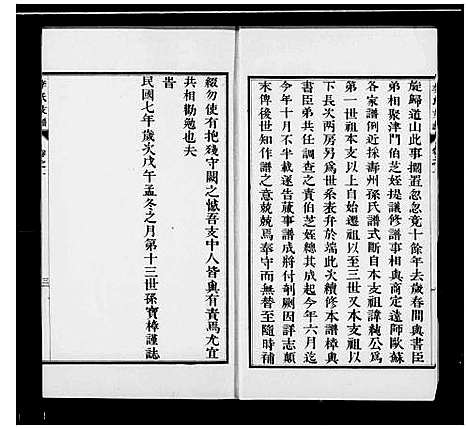 旋歸道山此事擱置忽忽竟十餘年去歲春間與書臣
弟相聚津門伯芝姪提議修譜事相與商定遠師歐蘇
各家譜例近採壽州孫氏譜式斷自本支祖諱純公爲
第一世祖本支以上自始遷祖以至三世又本支祖以
下長次兩房另爲世系表弁於端此次續修本譜樟與
書臣弟共任調查之責伯芝姪總其成起今年六月迄
今年十月不半載遂告蕆事譜成將付剞劂因詳志顛
末俾後世知作譜之意兢兢焉奉守而無替至隨時補
綴勿使有抱殘守闕之憾吾支中人皆與有責焉尤宜
共相勸勉也夫
旹
民國七年歲次戊午孟冬之月第十三世孫寶樟謹誌
三